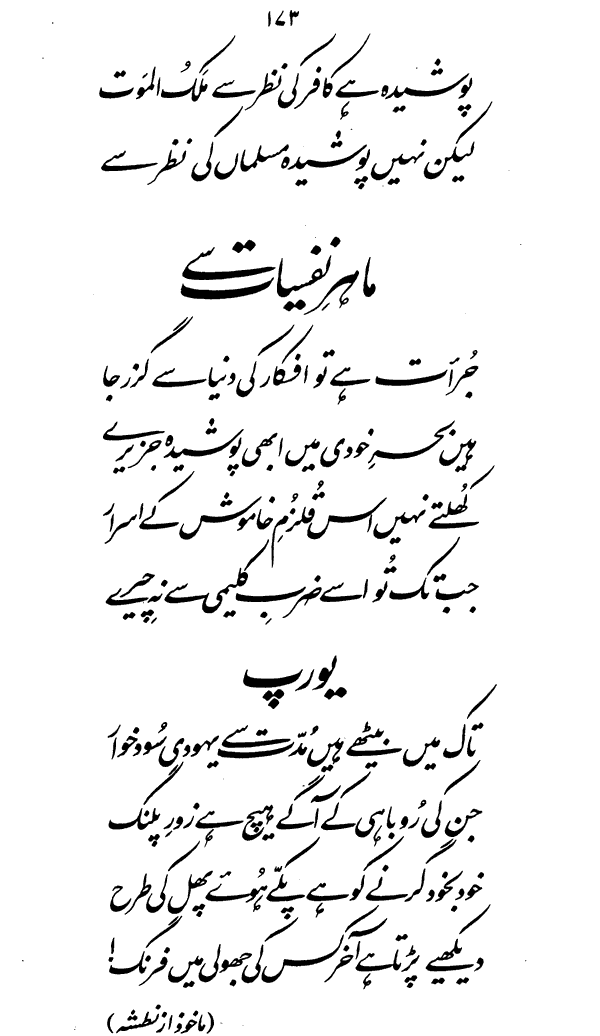 ۱۷۳
پوشیدہ ہے کافر کی نظر سے مَلَکُ الموَت
لیکن نہیں پوشیدہ مسلماں کی نظر سے
ماہرِ نفسیات سے
جُرأت ہے تو افکار کی دنیا سے گزر جا
ہیں بحرِ خودی میں ابھی پوشیدہ جزیرے
کُھلتے نہیں اس قُلزُمِ خاموش کے اسرار
جب تک تُو اسے ضربِ کلیمی سے نہ چیرے
یورپ
تاک میں بیٹھے ہیں مُدّت سے یہودی سُود خوار
جن کی رُوباہی کے آگے ہیچ ہے زورِ پلنگ
خود بخود گرنے کو ہے پکّے ہُوئے پھل کی طرح
دیکھیے پڑتا ہے آخر کس کی جھولی میں فرنگ!
(ماخوذ از نطشہ)